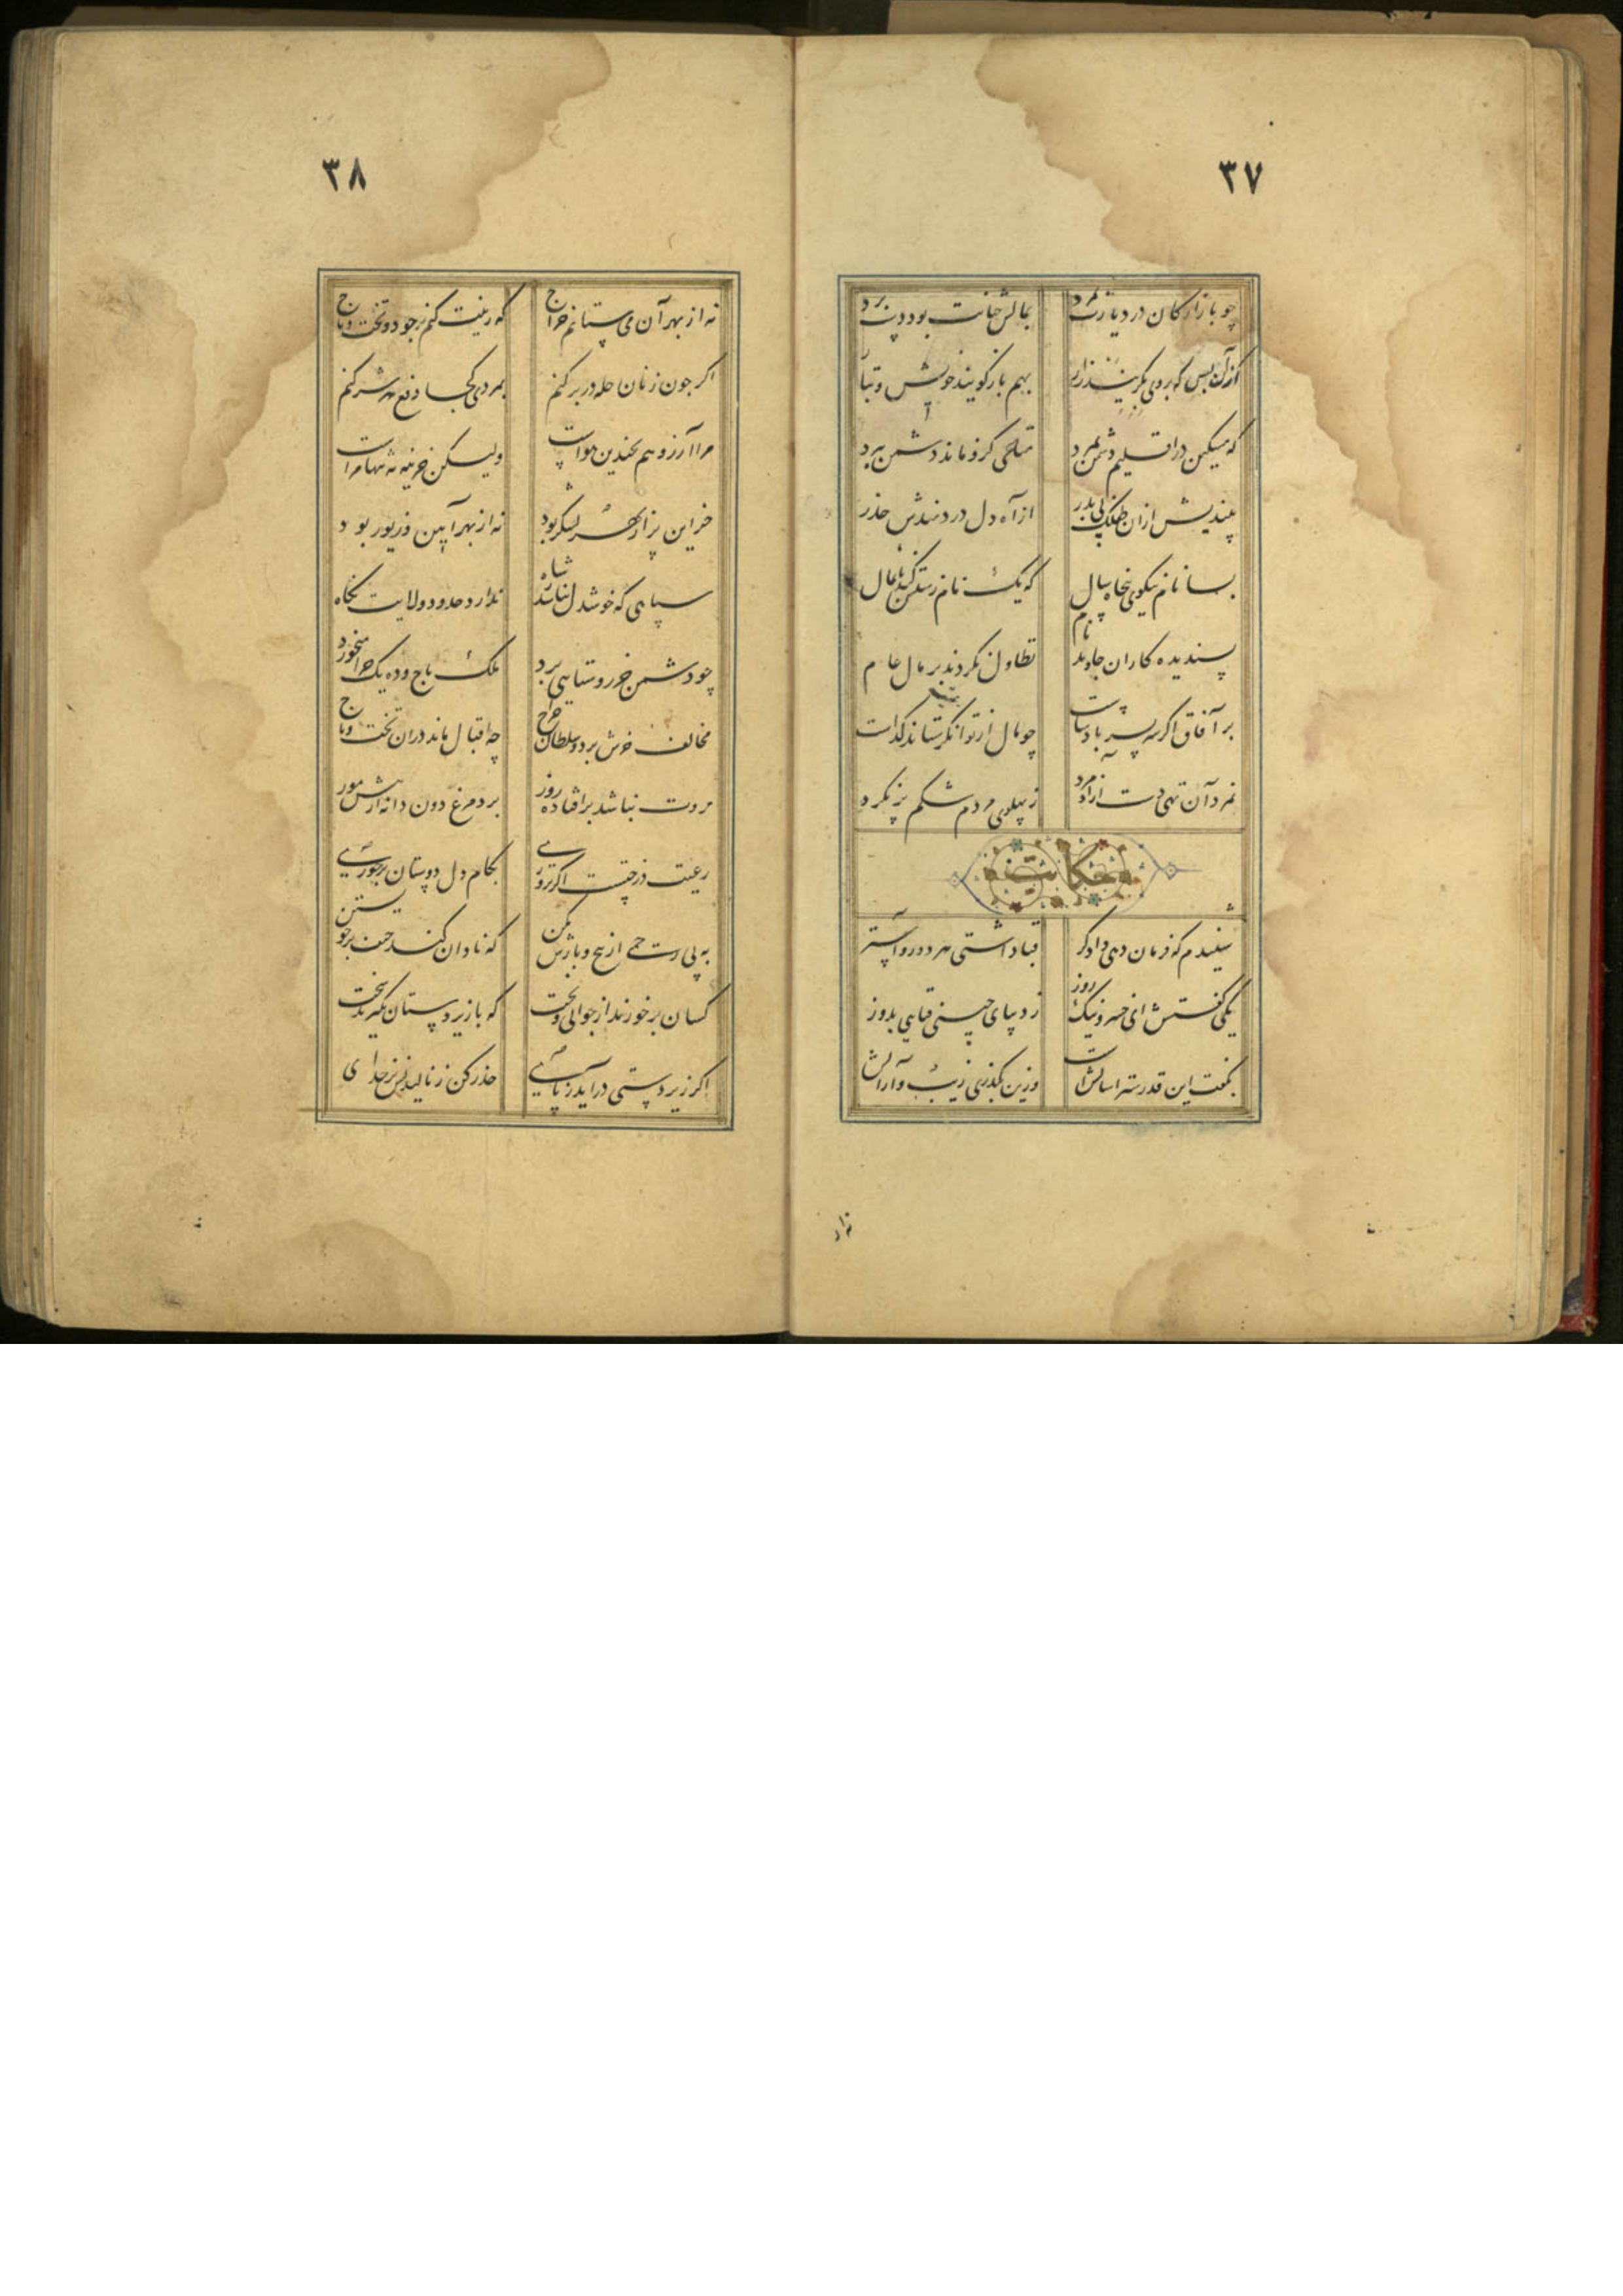 ۳۷
چو بازارکان در دیارت بمرد
بمالش خیانت بود دست برد
کزان پس که بروی بگریند زار
بهم باز گویند خویش و تبار
که مسکین در اقلیم دشمن بمرد
متاعی کزو ماند دشمن ببرد
بیندیش ازان طفلک بی پدر
از آه دل دردمندش حذر
بسا نام نیکوی پنجاه سال
که یک نام زشتش کند پایمال
پسندیده کاران جاوید نام
تطاول نکردند بر مال عام
بر آفاق اگر سر بسر پادشاست
چو مال از توانگر ستاند گداست
بمرد آن تهی دست آزاد مرد
ز پهلوی مردم شکم پر نکرد
حکایت
شنیدم که فرمان دهی دادگر
قبا داشتی هر دو رو آستر
یکی گفتش ای خسرو نیک روز
ز دیبای چینی قبایی بدوز
بگفت این قدر ستر و آسایش است
وزین بگذری زیب و آرایش
نه از
۳۸
نه از بهر آن می ستانم خراج
که زینت کنم بر خود و تخت و تاج
اگر چون زنان حله در بر کنم
بمردی کجا دفع دشمن کنم
مرا آرزو هم بچندین هواست
ولیکن خزینه نه تنها مراست
خزاین پر از بهر لشکر بود
نه از بهر آیین و زیور بود
سپاهی که خوشدل نباشد ز شاه
ندارد حدود ولایت نگاه
چو دشمن خر روستایی برد
ملک باج و ده یک چرا میخورد
مخالف خرش برد و سلطان خراج
چه اقبال ماند دران تخت و تاج
مروت نباشد بر افتاده زور
برد مرغ دون دانه از پیش مور
رعیت درختست اگر پروری
بکام دل دوستان بر خوری
به بی رحمی از بیخ و بارش مکن
که نادان کند حیف بر خویشتن
کسان بر خورند از جوانی و بخت
که با زیردستان نگیرند سخت
اگر زیردستی درآید ز پای
حذر کن ز نالیدنش بر خدای